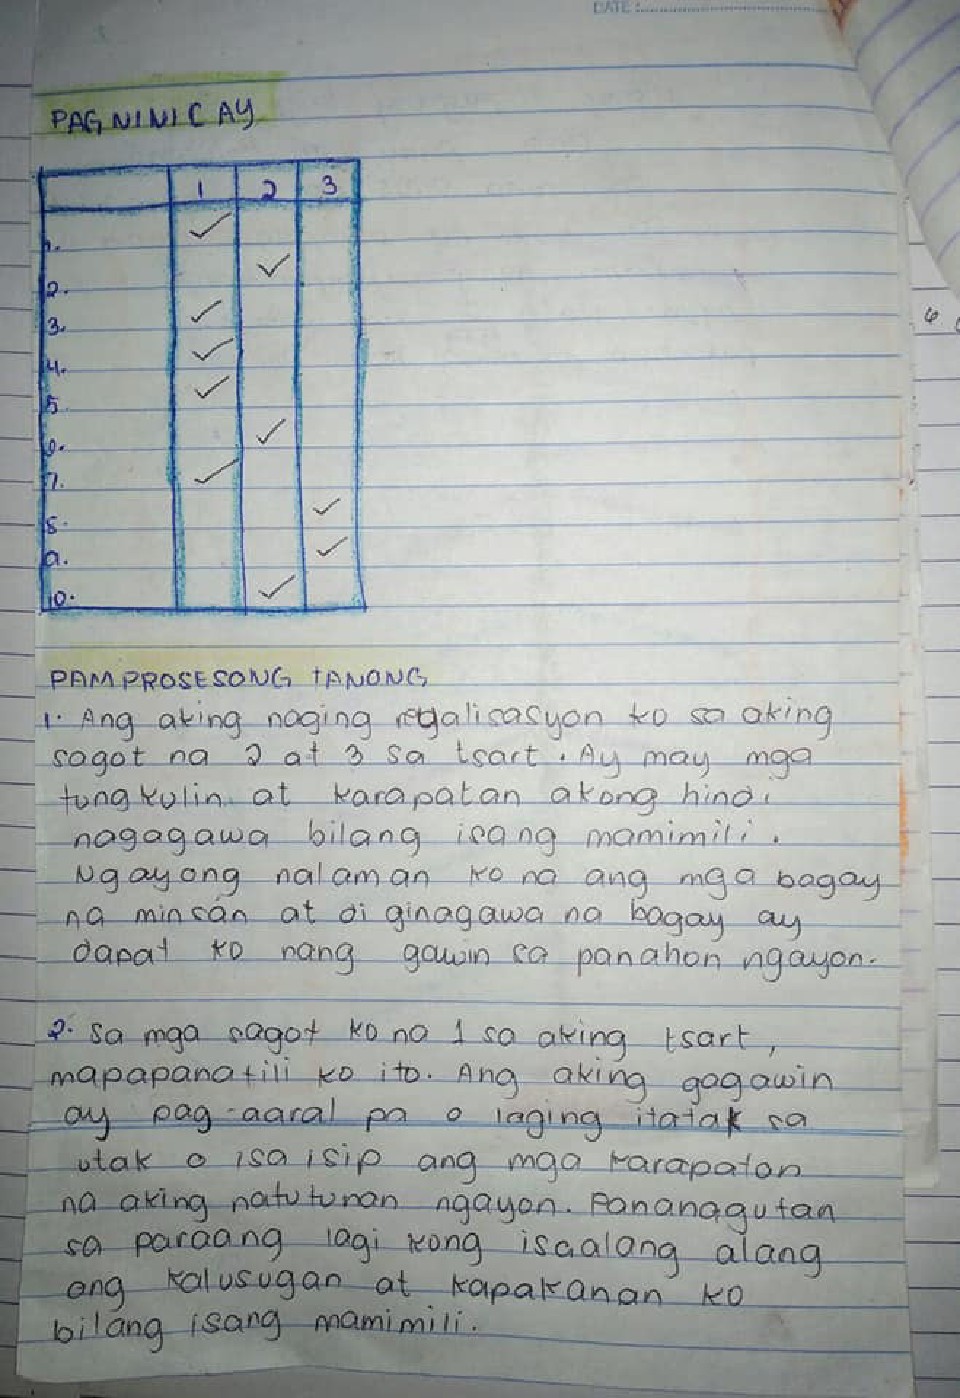 DATE :
PAGNINICAY
1 2 3
1. ✓
2. ✓
3. ✓
4. ✓
5. ✓
6. ✓
7. ✓
8. ✓
9. ✓
10. ✓
PAMPROSESONG TANONG
1. Ang aking naging regalisasyon ko sa aking
sagot na 2 at 3 sa tsart. Ay may mga
tungkulin at karapatan akong hindi
nagagawa bilang isang mamimili.
Ngayong nalaman ko na ang mga bagay
na minsan at di ginagawa na bagay ay
dapat ko nang gawin sa panahon ngayon.
2. Sa mga sagot ko na 1 sa aking tsart,
mapapanatili ko ito. Ang aking gagawin
ay pag-aaral pa o laging itatak sa
utak o isa isip ang mga karapatan
na aking natutunan ngayon. Pananagutan
sa paraang lagi kong isaalang alang
ang kalusugan at kapakanan ko
bilang isang mamimili.